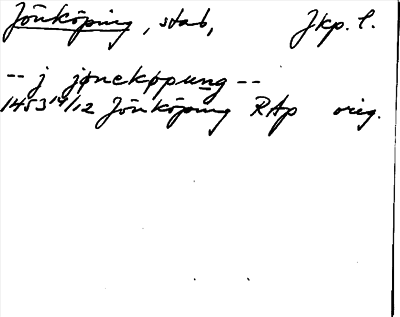 Jönköping, stad, Jkp. l.
-- j jøneköpung --
1453 19/12 Jönköping RAp orig.